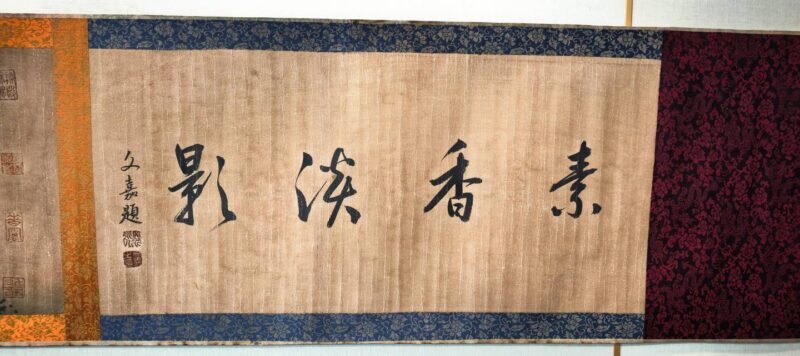 素香淡影
文嘉題